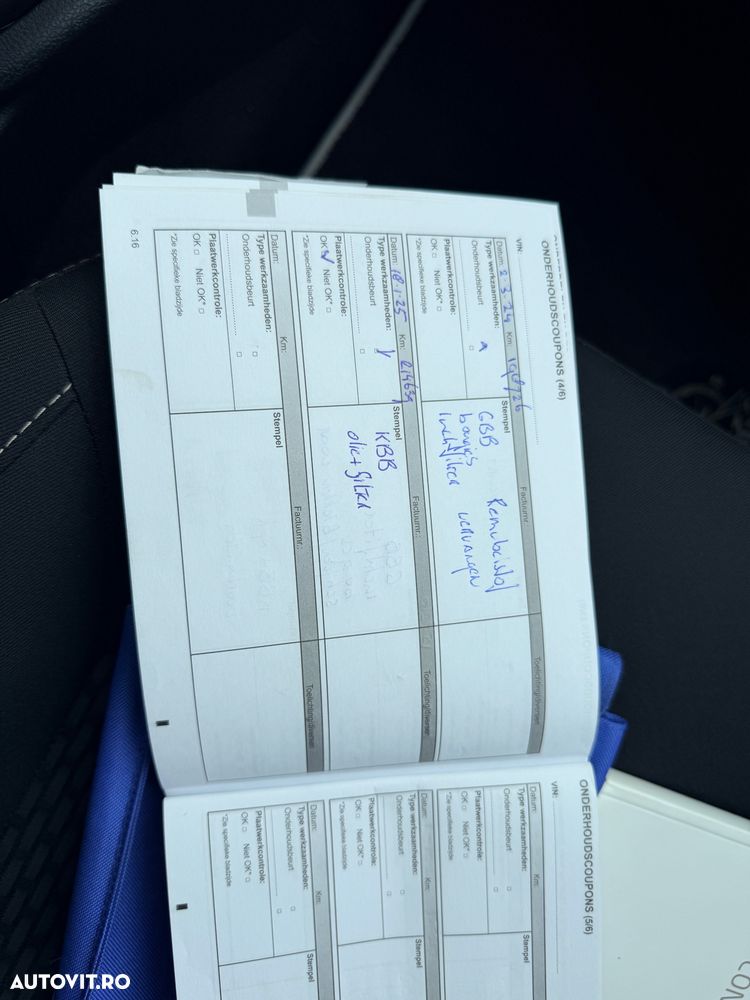 ONDERHOUDSCOUPONS (4/6)
VIN:
Datum: 2-3-24 Km:
Factuurnr.:
Toelichting/diversen
Type werkzaamheden:
Stempel
Onderhoudsbeurt
GBB
Remvloeistof
Plaatwerkcontrole:
bougies
vervangen
OK Niet OK*
luchtfilter
*Zie specifieke bladzijde
Datum: 18-1-25 Km: 214639
Factuurnr.:
Toelichting/diversen
Type werkzaamheden:
Stempel
Onderhoudsbeurt
KBB
Plaatwerkcontrole:
olie+filter
OK Niet OK*
*Zie specifieke bladzijde
Datum: Km:
Factuurnr.:
Toelichting/diversen
Type werkzaamheden:
Stempel
Onderhoudsbeurt
Plaatwerkcontrole:
OK Niet OK*
*Zie specifieke bladzijde
6.16
ONDERHOUDSCOUPONS (5/6)
VIN:
Datum: Km:
Type werkzaamheden:
Stempel
Onderhoudsbeurt
Plaatwerkcontrole:
OK Niet OK*
*Zie specifieke bladzijde
Datum: Km:
Type werkzaamheden:
Stempel
Onderhoudsbeurt
Plaatwerkcontrole:
OK Niet OK*
*Zie specifieke bladzijde
Datum: Km:
Type werkzaamheden:
Stempel
Onderhoudsbeurt
Plaatwerkcontrole:
OK Niet OK*
*Zie specifieke bladzijde
AUTOVIT.RO